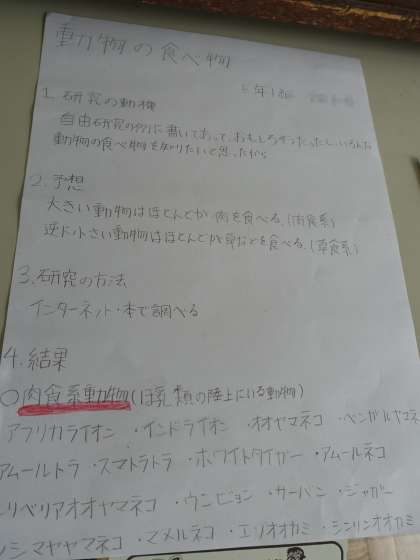 動物の食べ物
5年1組
1.研究の動機
自由研究の例に書いてあって、おもしろそうだったし、いろんな
動物の食べ物を知りたいと思ったから
2.予想
大きい動物はほとんどが肉を食べる。(肉食系)
逆に小さい動物はほとんどが草などを食べる。(草食系)
3.研究の方法
インターネット・本で調べる
4.結果
○肉食系動物(ほ乳類の陸上にいる動物)
アフリカライオン ・インドライオン ・オオヤマネコ ・ベンガルヤマネコ
アムールトラ ・スマトラトラ ・ホワイトタイガー ・アムールネコ
シベリアオオヤマネコ ・ウンピョウ ・サーバル ・ジャガー
ツシマヤマネコ ・マヌルネコ ・エゾオオカミ ・シンリンオオカミ